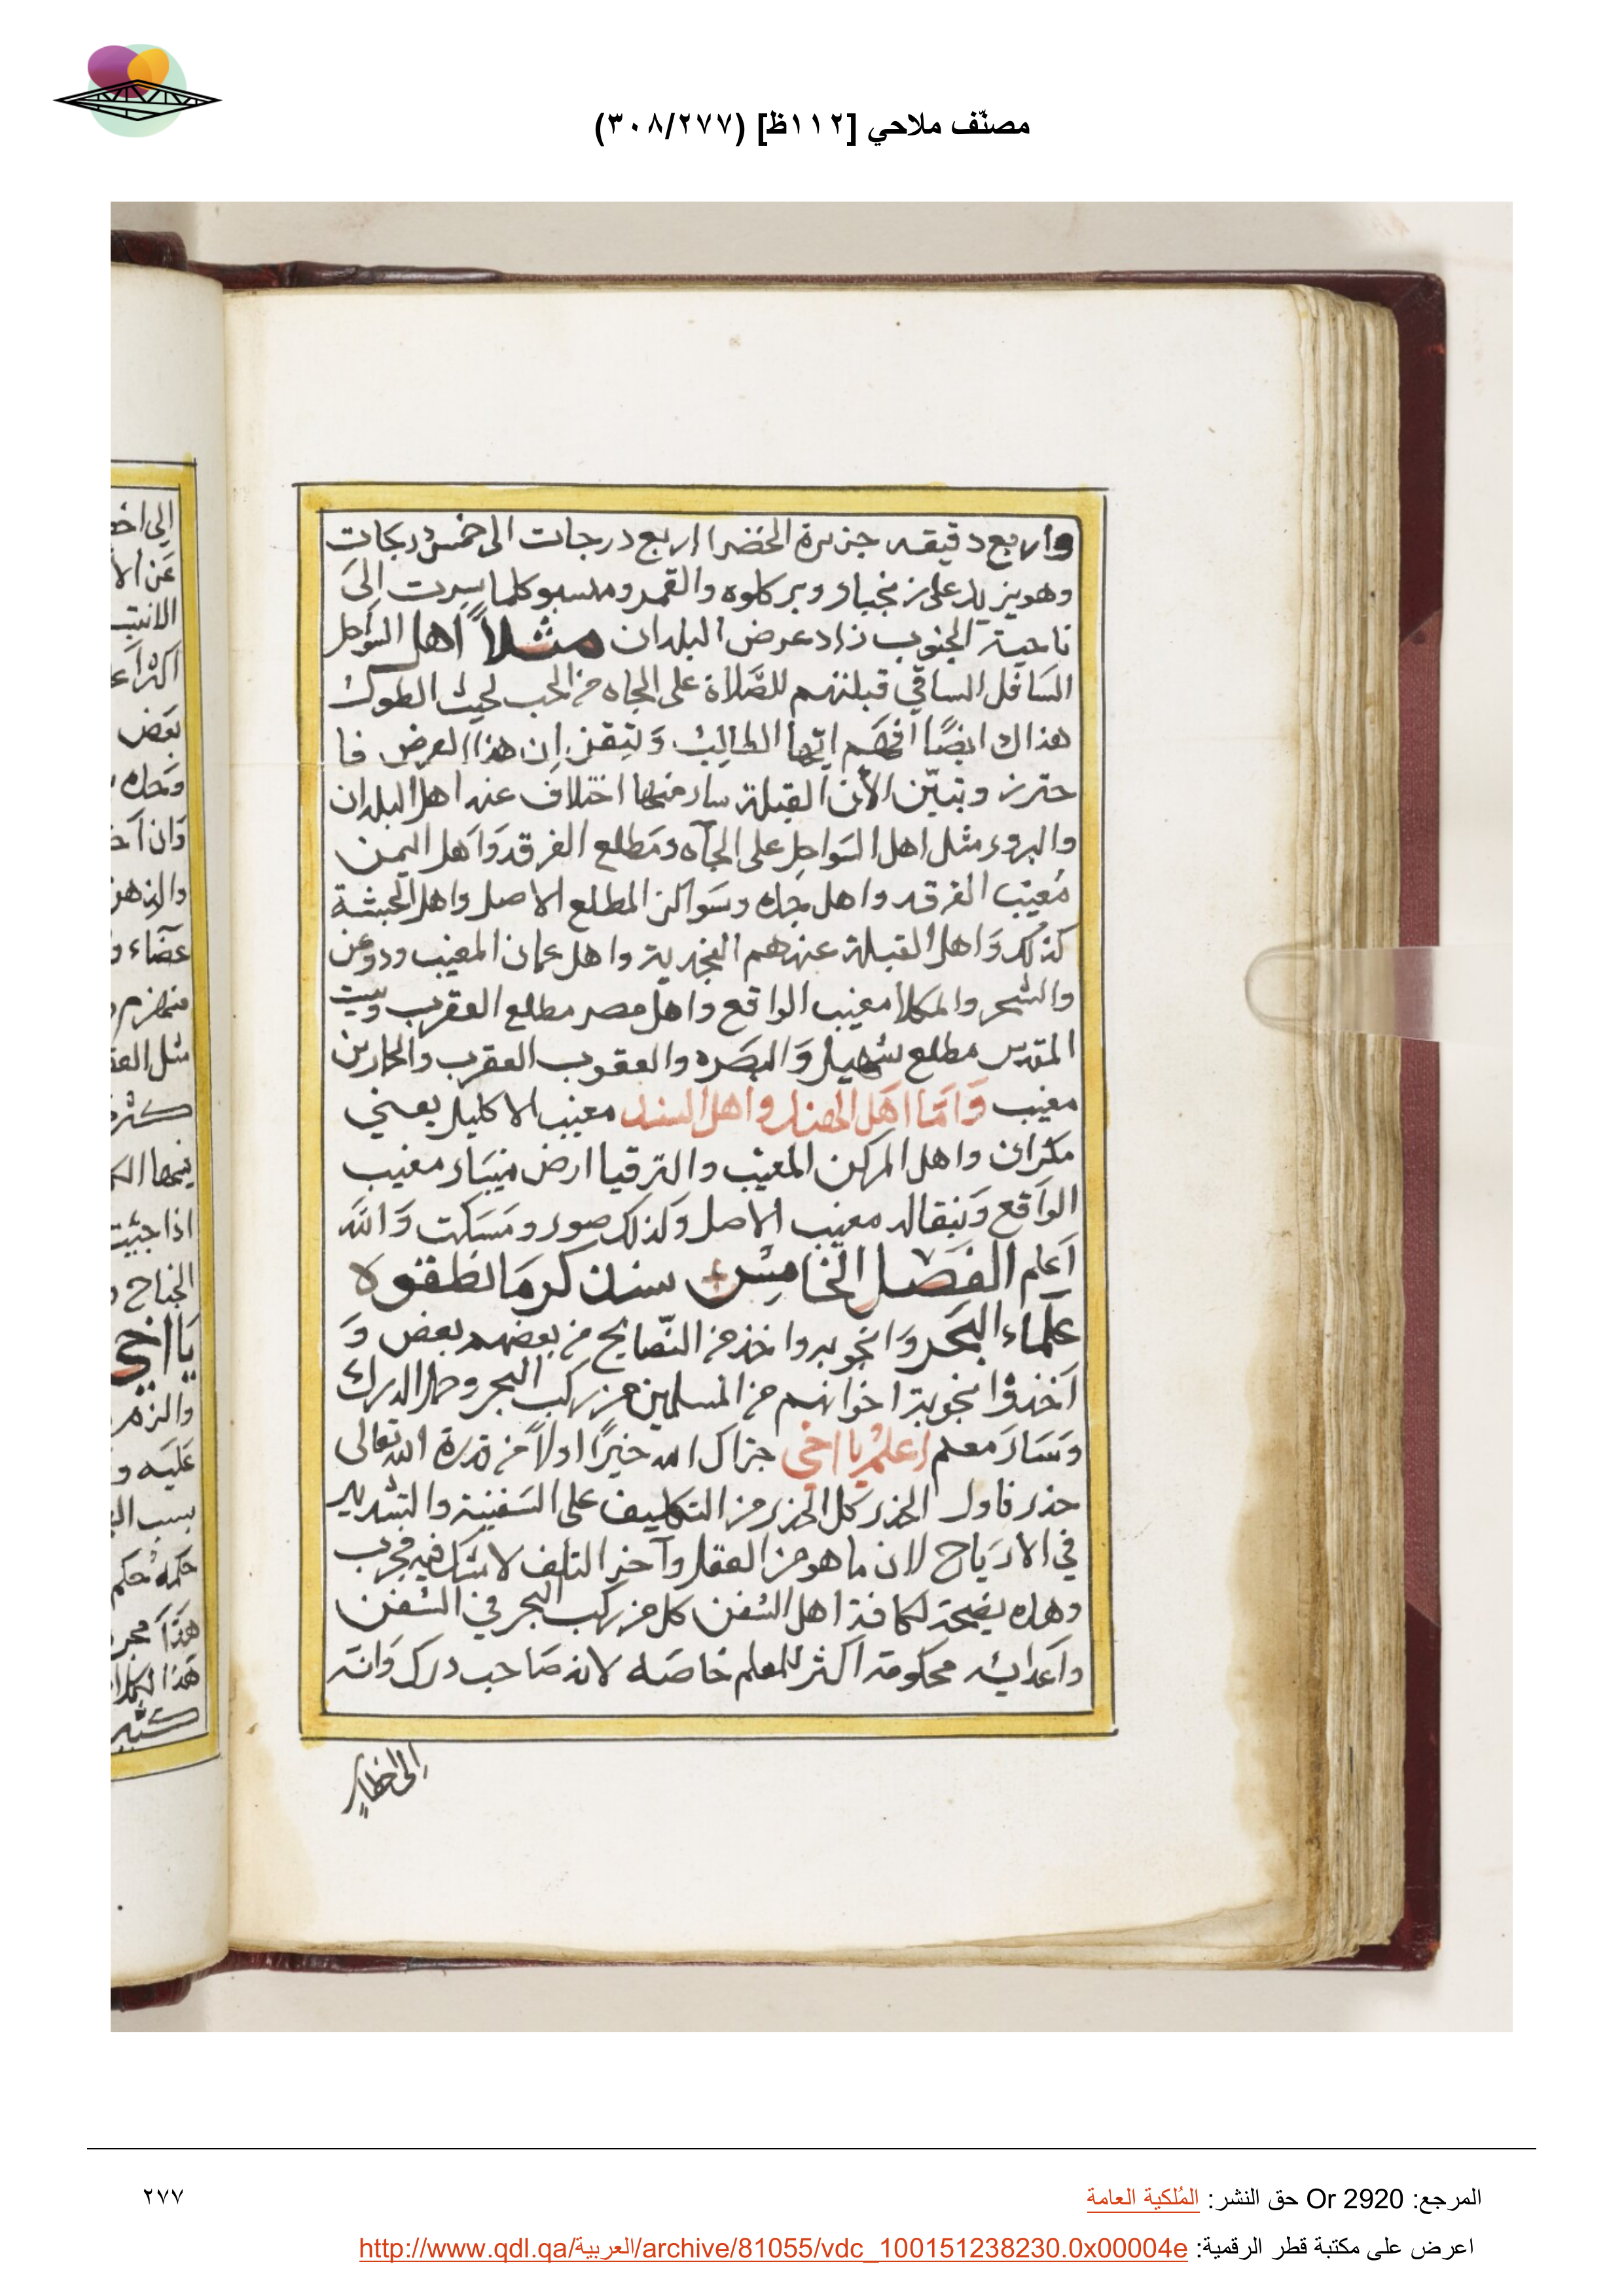 مصنّف ملاحي [١١٢ظ] (٣٠٨/٢٧٧)
واربع دقيقه جزيرة الخضرا اربع درجات الى خمس دركات
وهو يزيد على زنجبار وبر كلوه والقمر ومنسبو كلما سرت الىَ
ناحية الجنوب زاد عرض البلدان مثلاً اهل السواحل
السافل الساقي قبلتهم للصَّلاة على الجاه من الجب لحيث الطوك
هذاك ايضًا افهَم ايّها الطالب وَتيقن ان هذا العرض فا
حترز وتبيّن الأن القبلة سار منها اختلاف عند اهل البلدان
والبرور مثل اهل السَواحِل على الجاه ومَطلع الفرقد وَاهل اليمن
مُغيب الفرقد واهل جده وسَواكن المطلع الاصل واهل الحبشة
كذلك وَاهل القبلة عندهم النجدية واهل عمان المغيب ودوعن
والشحر والمكلا مغيب الواقع واهل مصر مطلع العقرب وبيت
المقدس مطلع سُهيل وَالبصَره والعقوب العقرب والحارين
مغيب وَامّا اهَل الهند واهل السند مغيب الاكليل يعني
مكران واهل المركن المغيب والترقيا ارض ميبَار مغيب
الوَاقع وَيَنقاله مغيب الاصل وَكذلك صور ومَسَكت وَاللّه
اَعلم الفَصْل الخامِسْ سنذكر مَا نطقوه
علماء البَحر وَانجوبروا خذ من النّصايح من بعضهم بعض وَ
اَخذوا نجوبة اخوانهم من المسلمين من ركب البحر وحمل الدرك
وَسَارَ معلم اعلمْ يا اخي جزاك الله خيرًا اولاً من قدرة الله تعالى
حذر فاول الحذر كل الحذر من التكليف على السَفينة والتشديد
في الاريَاح لان ما هو من العقل وآخر التلف لا شك فيه مجرب
وهاده نصيحة لكافة اهل السُفن كل من ركب البحر في السُفن
واَعدايه محكومة اكثر للمعلم خاصه لانه صَاحب درك وَانه
إلى اخطار
الى اخط
عَن الا
بعَض
وَان اَخ
عضاء و
مثل العق
اذا جيت
الجناح
يَا اخي
والزم
عَليه و
حكمهُ حكم
هَذا مجر
هَذا الكلا
المرجع: Or 2920 حق النشر: المُلكية العامة
٢٧٧
اعرض على مكتبة قطر الرقمية: http://www.qdl.qa/العربية/archive/81055/vdc_100151238230.0x00004e